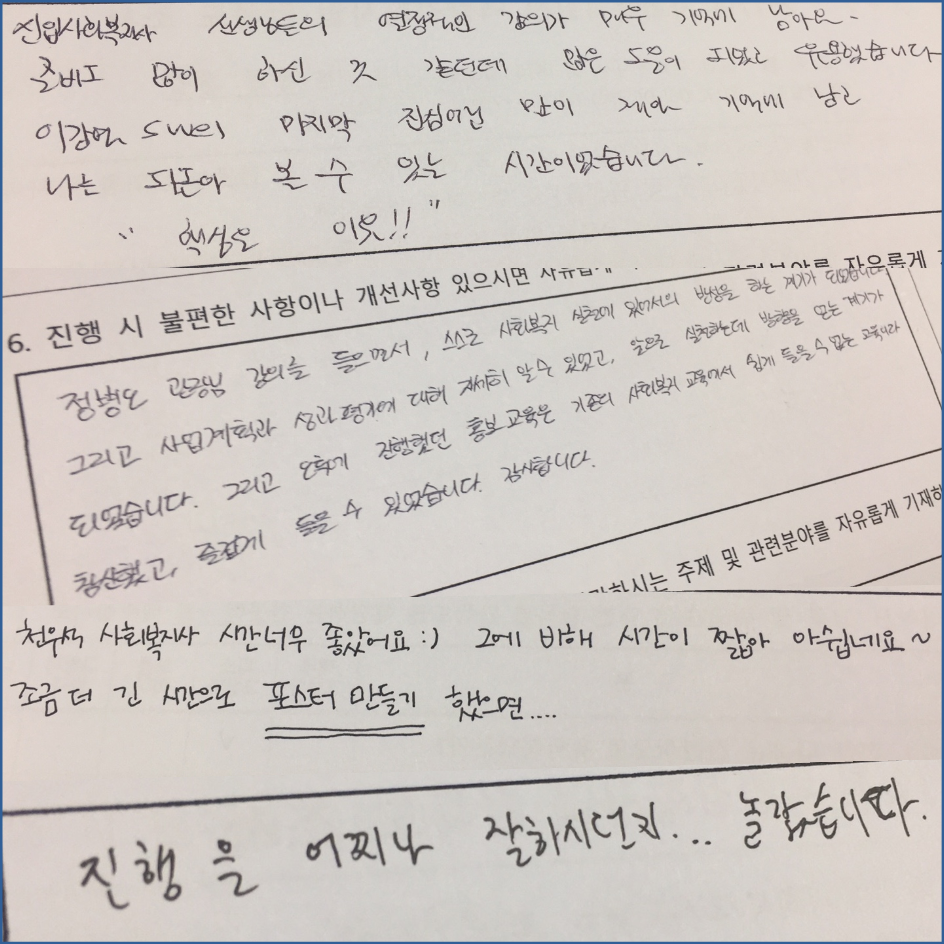 진입사회복지사 선생님들의 열정적인 강의가 매우 기억에 남아요.
준비도 많이 하신 것 같던데 많은 도움이 되었고 유용했습니다
이강현 SW의 마지막 진심어린 말이 제일 기억에 남고
나를 되돌아 볼 수 있는 시간이었습니다.
" 핵심은 이웃!! "
6. 진행 시 불편한 사항이나 개선사항 있으시면
정병오 관장님 강의를 들으면서, 스스로 사회복지 실천에 있어서의 반성을 하는 계기가 되었습니다.
그리고 사업계획과 성과평가에 대해 자세히 알 수 있었고, 앞으로 실천하는데 방향을 얻는 계기가
되었습니다. 그리고 오후에 진행했던 홍보교육은 기존의 사회복지 교육에서 쉽게 들을 수 없는 교육이라
참신했고, 즐겁게 들을 수 있었습니다. 감사합니다.
하시는 주제 및 관련분야를 자유롭게 기재하
천우석 사회복지사 시간너무 좋았어요 :) 그에 비해 시간이 짧아 아쉽네요~
조금 더 긴 시간으로 포스터 만들기 했으면....
진행을 어찌나 잘하시던지... 놀랐습니다.